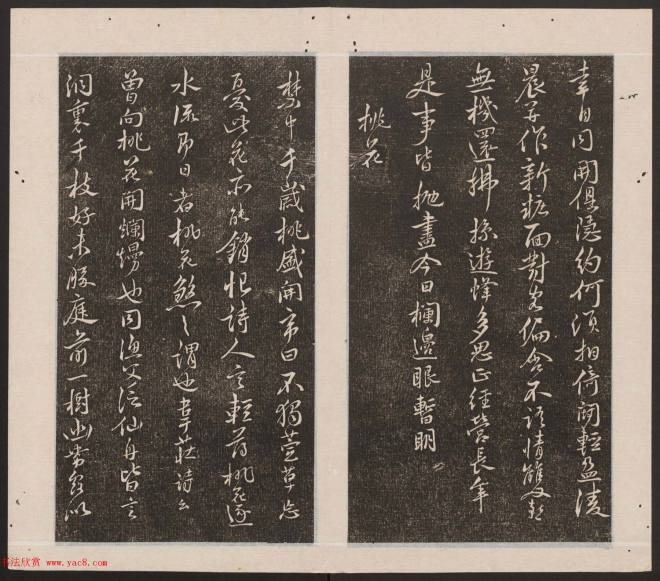 幸自同開俱隐約何須相倚鬪輕盈陵
晨并作新粧面對客偏含不語情雙燕
無機還拂掠遊蜂多思正經營長年
是事皆抛盡今日欄邊眼暫明
桃花
禁中千歲桃盛開帝曰不獨萱草忘
憂此花亦能銷恨詩人言輕薄桃花逐
水流即日者桃花煞之謂也韋莊詩云
曾向桃花開爛熳也同漁父泛仙舟皆言
洞裏千枝好未勝庭前一樹幽
書法欣賞 www.yac8.com